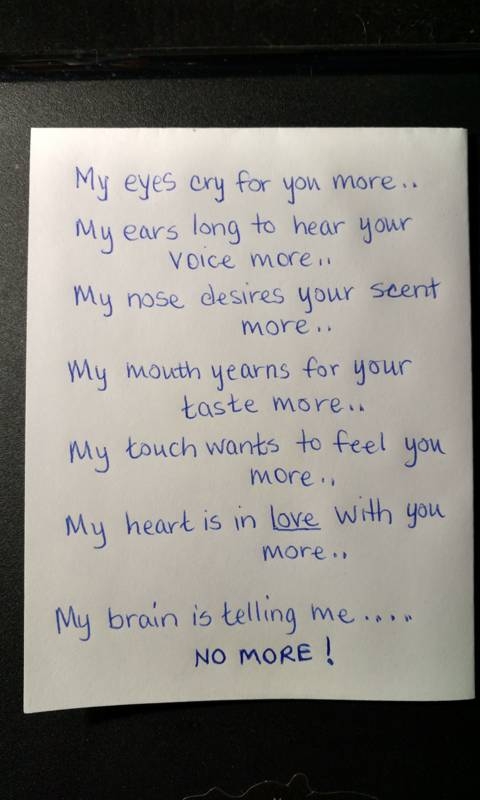 My eyes cry for you more..
My ears long to hear your
voice more..
My nose desires your scent
more..
My mouth yearns for your
taste more..
My touch wants to feel you
more..
My heart is in love with you
more..
My brain is telling me.....
NO MORE!